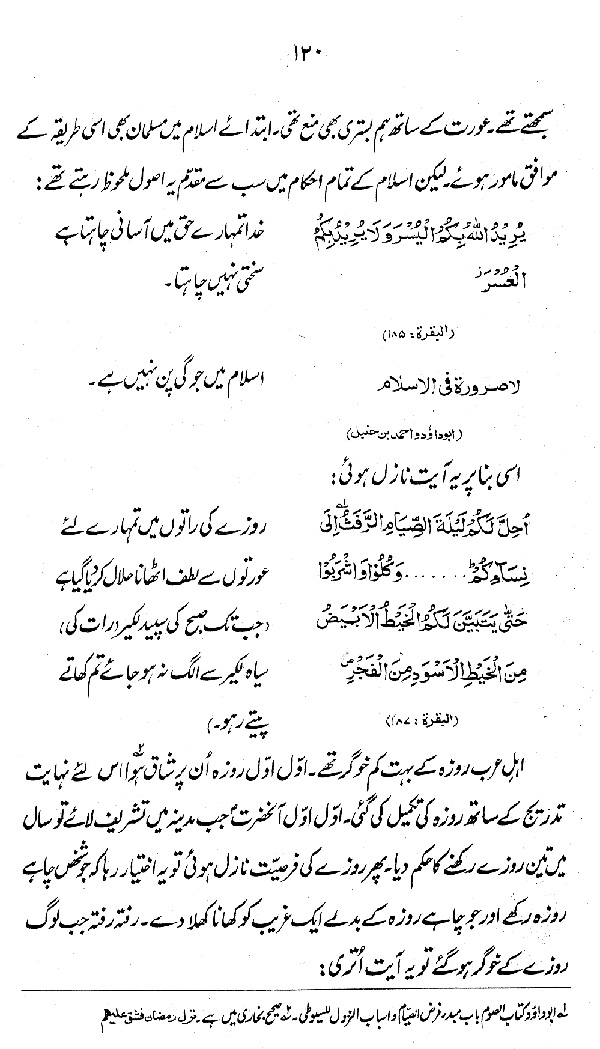 ۱۲۰
سمجھتے تھے۔ عورت کے ساتھ ہم بستری بھی منع تھی۔ ابتدائے اسلام میں مسلمان بھی اسی طریقہ کے
موافق مامور ہوئے۔ لیکن اسلام کے تمام احکام میں سب سے مقدم یہ اصول ملحوظ رہتے تھے:
يُرِيْدُ اللّٰهُ بِكُمُ الْيُسْرَ وَلَا يُرِيْدُ بِكُمُ
خدا تمہارے حق میں آسانی چاہتا ہے
الْعُسْرَ
سختی نہیں چاہتا۔
(البقرة: ۱۸۵)
لا صرورة فی الاسلام
اسلام میں جوگی پن نہیں ہے۔
(ابوداؤد و احمد بن حنبل)
اسی بنا پر یہ آیت نازل ہوئی:
اُحِلَّ لَكُمْ لَيْلَةَ الصِّيَامِ الرَّفَثُ اِلٰى
روزے کی راتوں میں تمہارے لئے
نِسَآءِكُمْ ....... وَكُلُوْا وَاشْرَبُوْا
عورتوں سے لطف اٹھانا حلال کر دیا گیا ہے
حَتّٰى يَتَبَيَّنَ لَكُمُ الْخَيْطُ الْاَبْيَضُ
(جب تک صبح کی سپید لکیر (رات کی)
مِنَ الْخَيْطِ الْاَسْوَدِ مِنَ الْفَجْرِ
سیاہ لکیر سے الگ نہ ہو جائے تم کھاتے
(البقرة: ۱۸۷)
پیتے رہو۔)
اہل عرب روزہ کے بہت کم خوگر تھے۔ اوّل اوّل روزہ اُن پر شاق ہوا اس لئے نہایت
تدریج کے ساتھ روزہ کی تکمیل کی گئی۔ اوّل اوّل آنحضرتؐ جب مدینہ میں تشریف لائے تو سال
میں تین روزے رکھنے کا حکم دیا۔ پھر روزے کی فرضیت نازل ہوئی تو یہ اختیار رہا کہ جو شخص چاہے
روزہ رکھے اور جو چاہے روزہ کے بدلے ایک غریب کو کھانا کھلا دے۔ رفتہ رفتہ جب لوگ
روزے کے خوگر ہو گئے تو یہ آیت اُتری:
لہ ابوداؤد کتاب الصوم باب مبدء فرض الصیام و اسباب النزول للسیوطی۔ ۲ہ صحیح بخاری میں ہے۔ نزل رمضان فشق علیہم